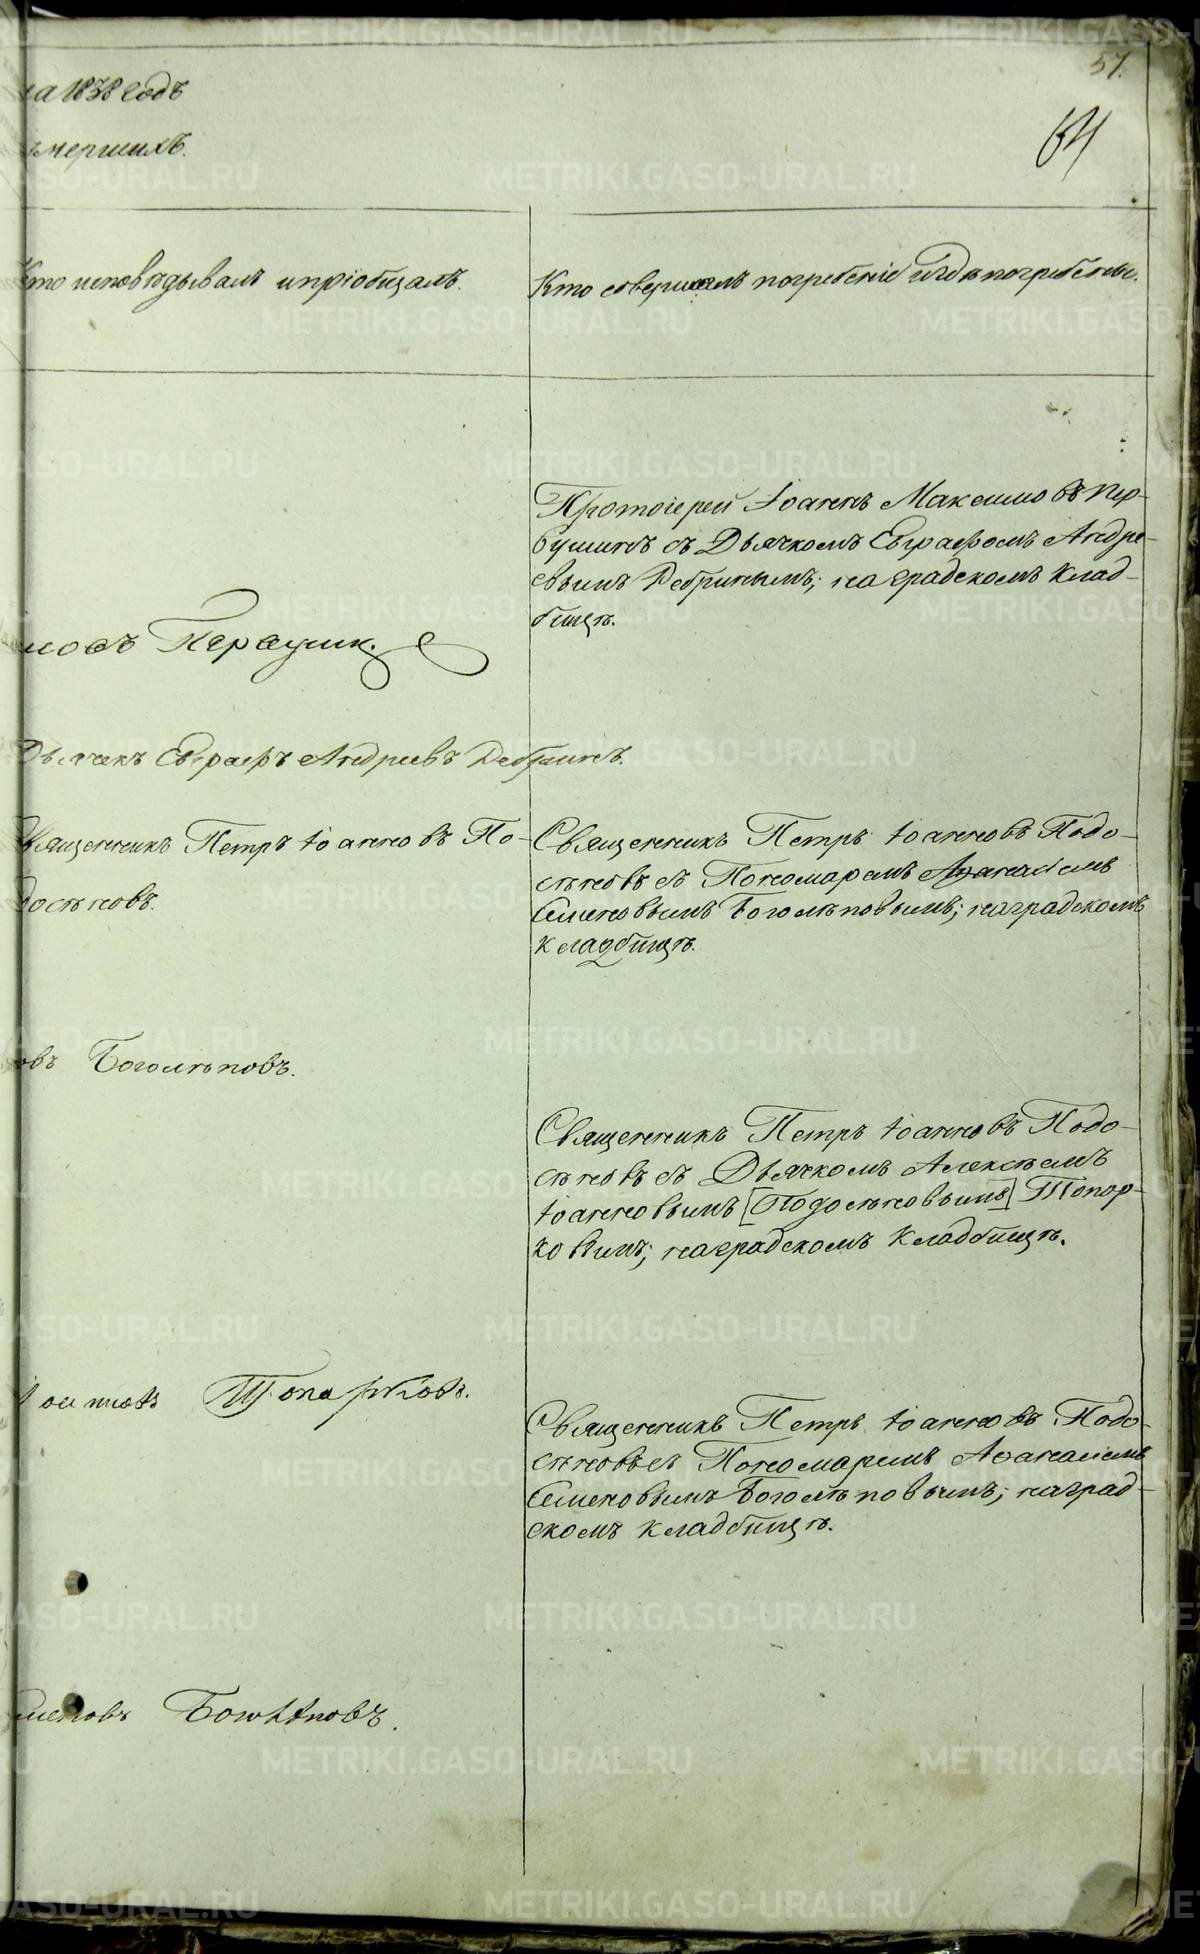 57.
64
на 1838 годъ
умершихъ.
Кто исповѣдывалъ и пріобщалъ.
Кто совершалъ погребеніе и гдѣ погребены.
Протоіерей Іоаннъ Максимовъ Пер-
вушинъ съ Дьячкомъ Евграфомъ Андре-
евымъ Дебринымъ; на градскомъ клад-
бищѣ.
мовъ Первушин.
Дьячекъ Евграфъ Андреевъ Дебринъ.
Священникъ Петръ Іоанновъ По-
досѣновъ.
Священникъ Петръ Іоанновъ Подо-
сѣновъ съ Пономаремъ Аѳанасіемъ
Семеновымъ Боголѣповымъ; на градскомъ
кладбищѣ.
овъ Боголѣповъ.
Священникъ Петръ Іоанновъ Подо-
сѣновъ съ Дьячкомъ Алексѣемъ
Іоанновымъ [Подосѣновымъ] Топор-
ковымъ; на градскомъ кладбищѣ.
Топорковъ.
Священникъ Петръ Іоанновъ Подо-
сѣновъ съ Пономаремъ Аѳанасіемъ
Семеновымъ Боголѣповымъ; на град-
скомъ кладбищѣ.
меновъ Боголѣповъ.
METRIKI.GASO-URAL.RU